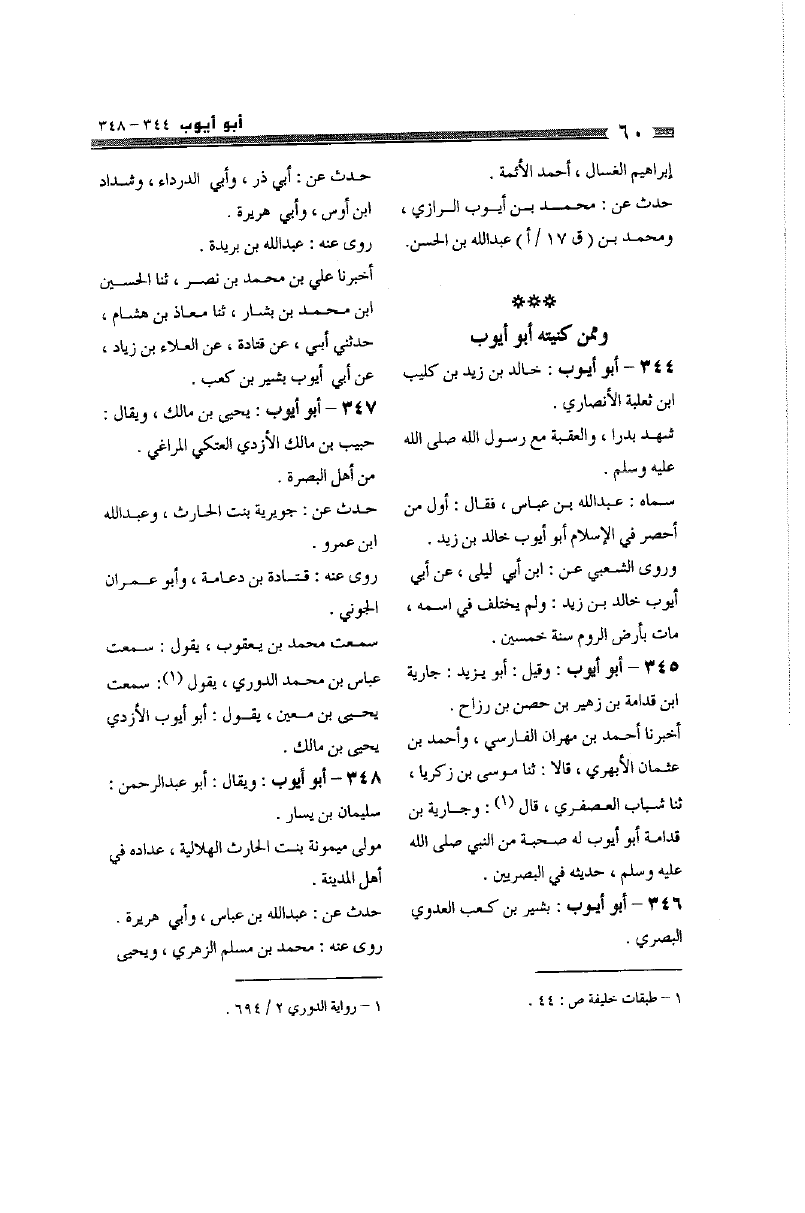 ٦٠
أبو أيوب ٣٤٤ – ٣٤٨
إبراهيم الغسال ، أحمد الأئمة .
حدث عن : محمد بن أيوب الرازي ،
ومحمد بن ( ق ١٧ / أ ) عبدالله بن الحسن.
***
وممن كنيته أبو أيوب
٣٤٤ – أبو أيوب : خالد بن زيد بن كليب
ابن ثعلبة الأنصاري .
شهد بدرا ، والعقبة مع رسول الله صلى الله
عليه وسلم .
سماه : عبدالله بن عباس ، فقال : أول من
أحصر في الإسلام أبو أيوب خالد بن زيد .
وروى الشعبي عن : ابن أبي ليلى ، عن أبي
أيوب خالد بن زيد : ولم يختلف في اسمه ،
مات بأرض الروم سنة خمسين .
٣٤٥ – أبو أيوب : وقيل : أبو يزيد : جارية
ابن قدامة بن زهير بن حصن بن رزاح .
أخبرنا أحمد بن مهران الفارسي ، وأحمد بن
عثمان الأبهري ، قالا : ثنا موسى بن زكريا ،
ثنا شباب العصفري ، قال (١) : وجارية بن
قدامة أبو أيوب له صحبة من النبي صلى الله
عليه وسلم ، حديثه في البصريين .
٣٤٦ – أبو أيوب : بشير بن كعب العدوي
البصري .
١ – طبقات خليفة ص : ٤٤ .
حدث عن : أبي ذر ، وأبي الدرداء ، وشداد
ابن أوس ، وأبي هريرة .
روى عنه : عبدالله بن بريدة .
أخبرنا علي بن محمد بن نصر ، ثنا الحسين
ابن محمد بن بشار ، ثنا معاذ بن هشام ،
حدثني أبي ، عن قتادة ، عن العلاء بن زياد ،
عن أبي أيوب بشير بن كعب .
٣٤٧ – أبو أيوب : يحيى بن مالك ، ويقال :
حبيب بن مالك الأزدي العتكي المراغي .
من أهل البصرة .
حدث عن : جويرية بنت الحارث ، وعبدالله
ابن عمرو .
روى عنه : قتادة بن دعامة ، وأبو عمران
الجوني .
سمعت محمد بن يعقوب ، يقول : سمعت
عباس بن محمد الدوري ، يقول (١): سمعت
يحيى بن معين ، يقول : أبو أيوب الأزدي
يحيى بن مالك .
٣٤٨ – أبو أيوب : ويقال : أبو عبدالرحمن :
سليمان بن يسار .
مولى ميمونة بنت الحارث الهلالية ، عداده في
أهل المدينة .
حدث عن : عبدالله بن عباس ، وأبي هريرة .
روى عنه : محمد بن مسلم الزهري ، ويحيى
١ – رواية الدوري ٢ / ٦٩٤ .